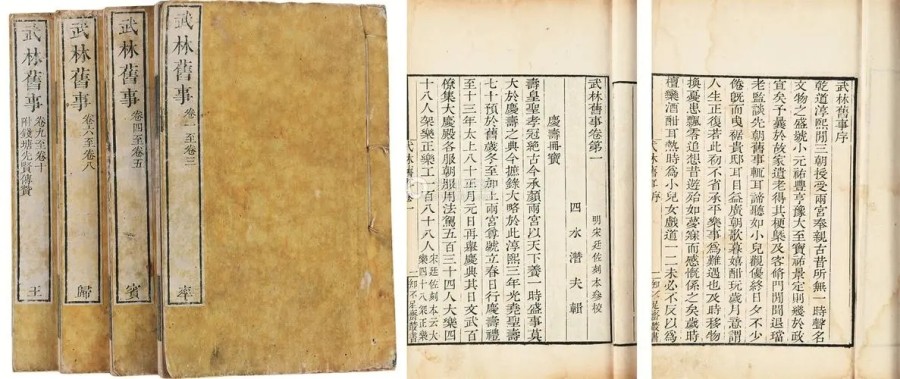 武林舊事
卷一至卷三
率
武林舊事
卷四至卷五
賓
武林舊事
卷六至卷八
歸
武林舊事
卷九至卷十
附錢塘先賢傳贊
王
武林舊事卷第一
明宋廷佐刻本參校
四水潛夫輯
慶壽冊寶
壽皇聖孝冠絕古今承顏兩宮以天下養一時盛事莫
大於慶壽之典今摭錄大略於此淳熙三年光堯聖壽
七十預於舊歲冬至加上兩宮尊號立春日行慶壽禮
至十三年太上八十正月元日再舉慶典其日文武百
僚集大慶殿各服朝服用法駕五百三十四人大樂四
十八人架樂正樂工一百八十八人宋廷佐刻本云大樂四十八架樂正樂
武林舊事卷一
一
知不足齋叢書
武林舊事序
乾道淳熙間三朝授受兩宮奉親古昔所無一時聲名
文物之盛號小元祐豐亨豫大至寶祐景定則幾於政
宣矣予曩於故家遺老得其梗槩及客脩門閒聞退璫
老監談先朝舊事輒耳諦聽如小兒觀優終日夕不少
倦既而曳裾貴邸耳目益廣朝歌暮嬉酣玩歲月意謂
人生正復若此初不省承平樂事為難遇也及時移物
換憂患飄零追想昔遊殆如夢寐而感慨係之矣歲時
檀欒酒酣耳熱時為小兒女戲道一二未必不反以為
武林舊事序
一
知不足齋叢書